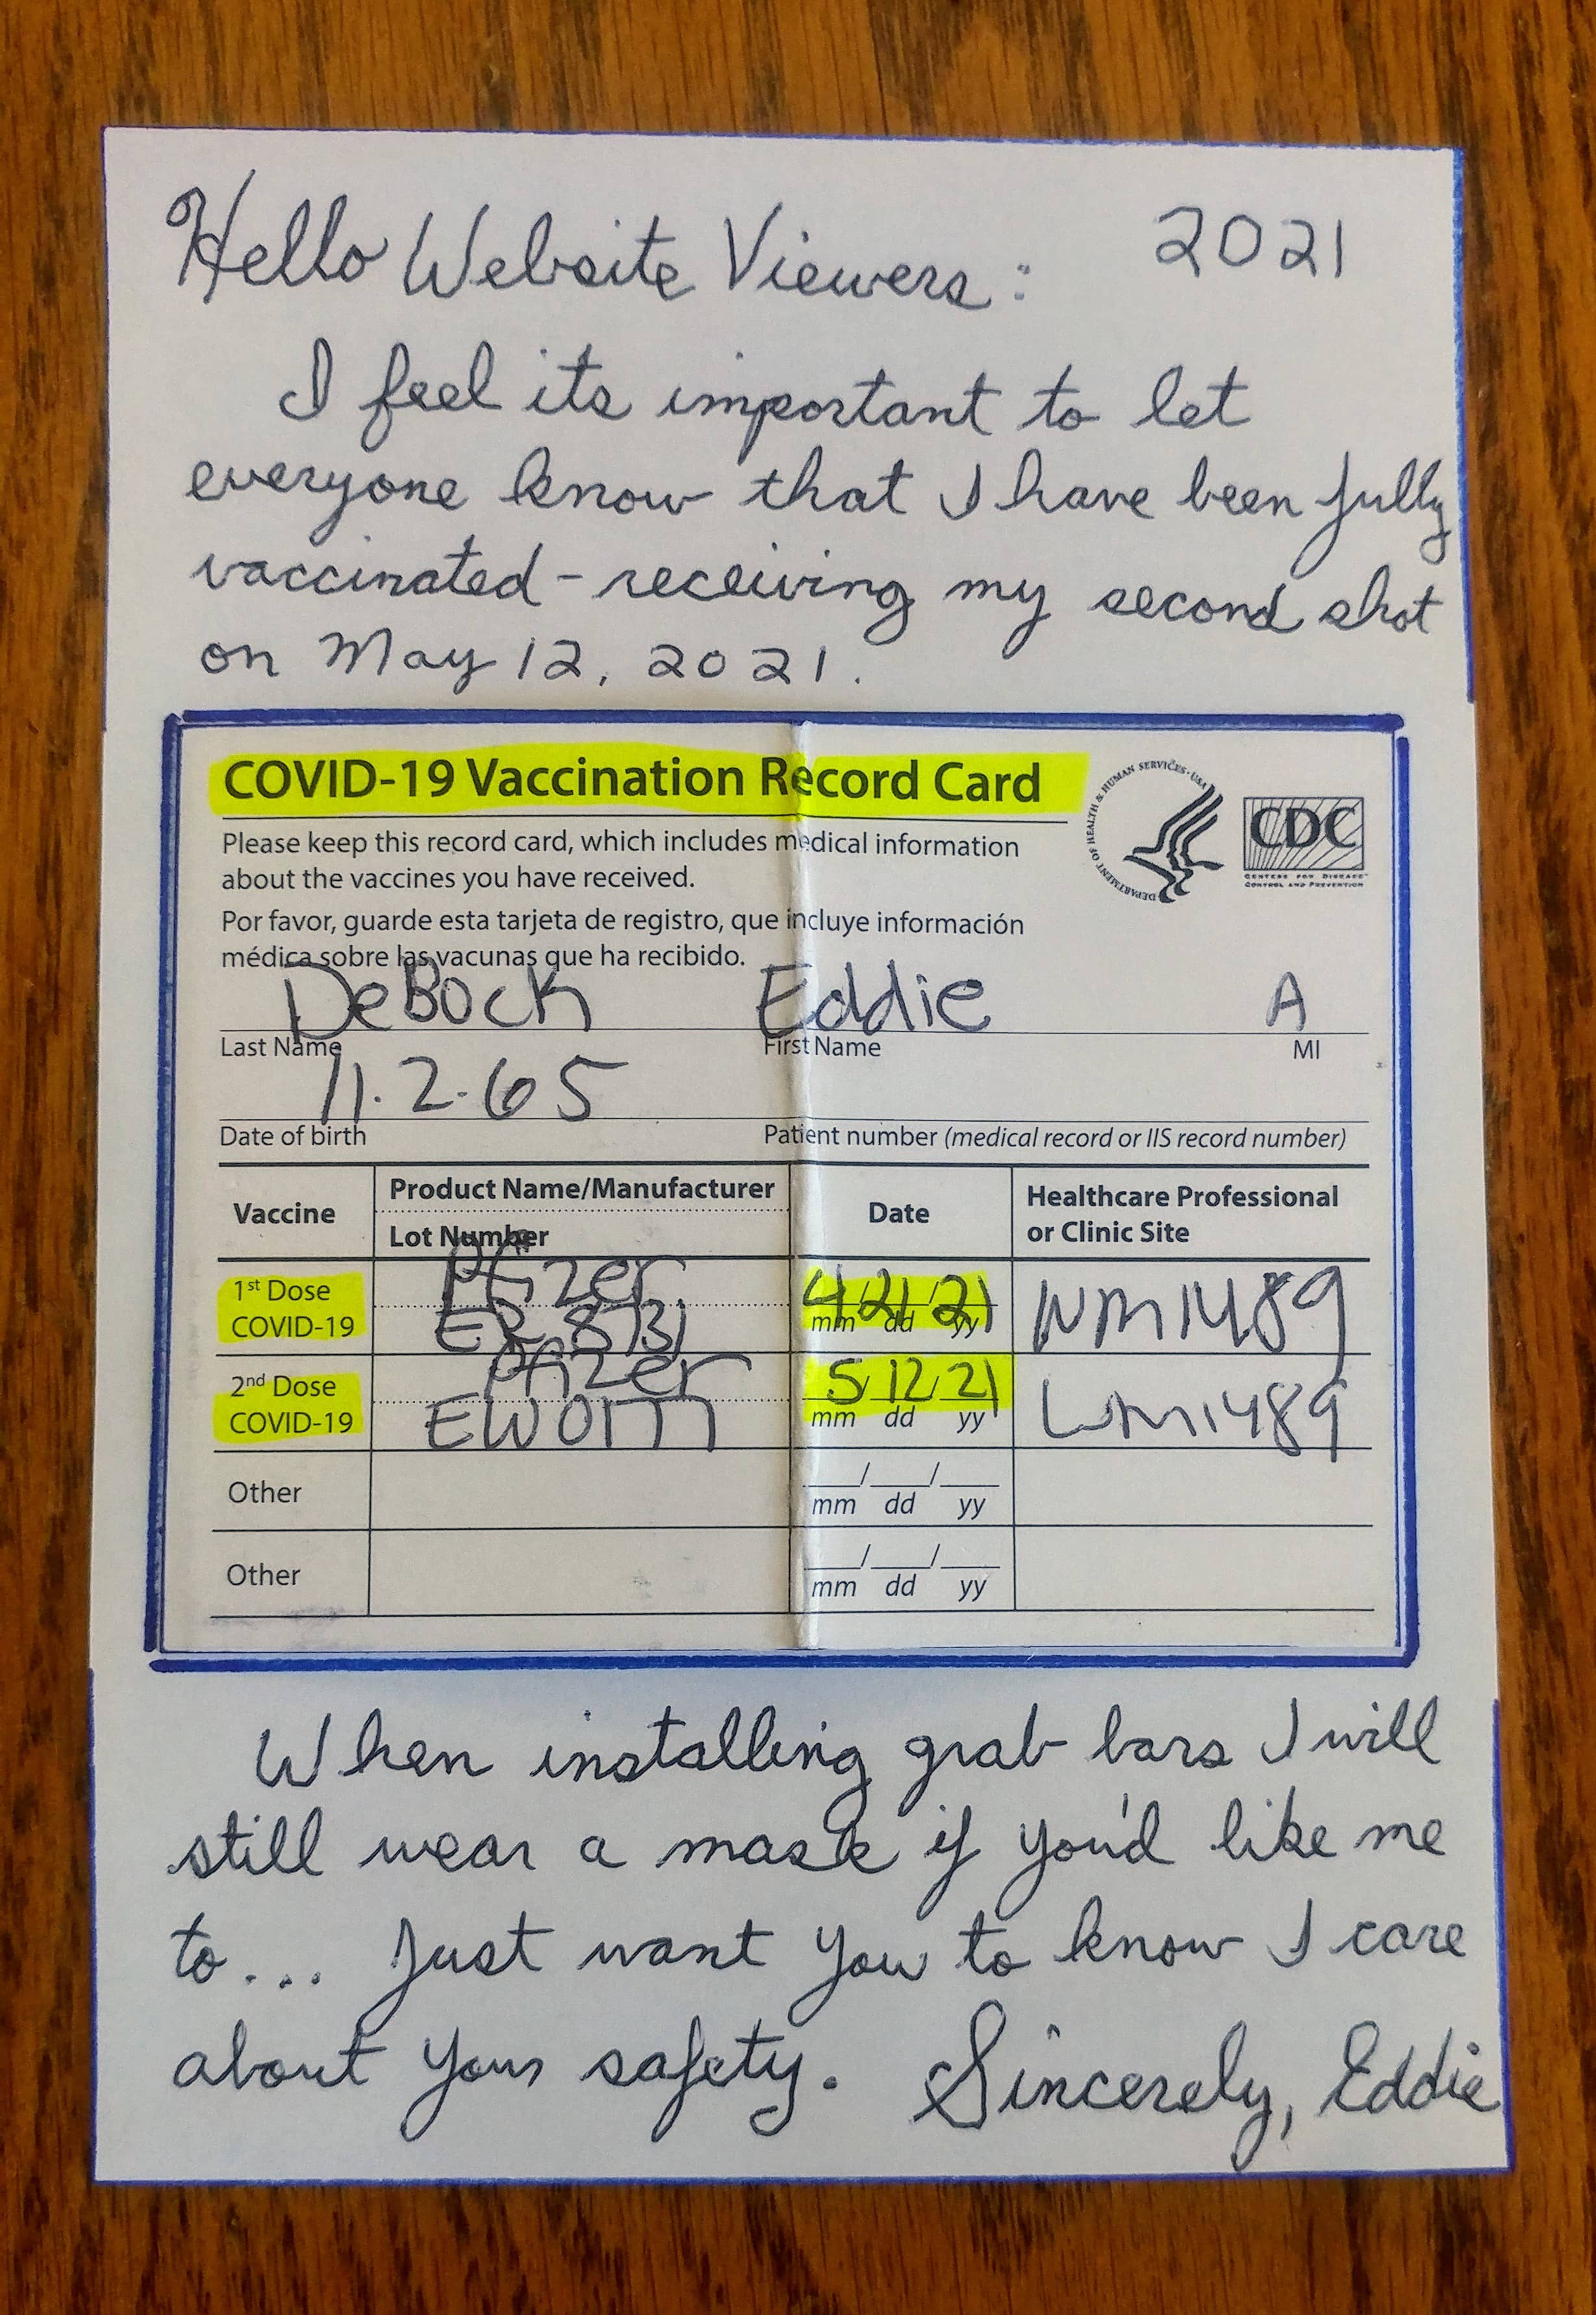 Hello Website Viewers: 2021
I feel its important to let
everyone know that I have been fully
vaccinated - receiving my second shot
on May 12, 2021.
COVID-19 Vaccination Record Card
Please keep this record card, which includes medical information
about the vaccines you have received.
Por favor, guarde esta tarjeta de registro, que incluye información
médica sobre las vacunas que ha recibido.
DEPARTMENT OF HEALTH & HUMAN SERVICES · USA
CDC
CENTERS FOR DISEASE
CONTROL AND PREVENTION
DeBock Eddie A
Last Name First Name MI
11.2.65
Date of birth Patient number (medical record or IIS record number)
Vaccine Product Name/Manufacturer Date Healthcare Professional
Lot Number or Clinic Site
1st Dose Pfizer 4/21/21 WM1489
COVID-19 ER8731 mm dd yy
2nd Dose Pfizer 5/12/21 WM1489
COVID-19 mm dd yy
Other __/__/__
mm dd yy
Other __/__/__
mm dd yy
When installing grab bars I will
still wear a mask if you'd like me
to... Just want you to know I care
about your safety. Sincerely, Eddie